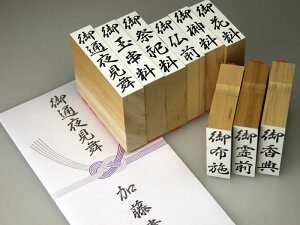 御通夜見舞
御玉串料
御祭祀料
御仏前
御榊料
御花料
御通夜見舞
加藤
御布施
御霊前
御香典